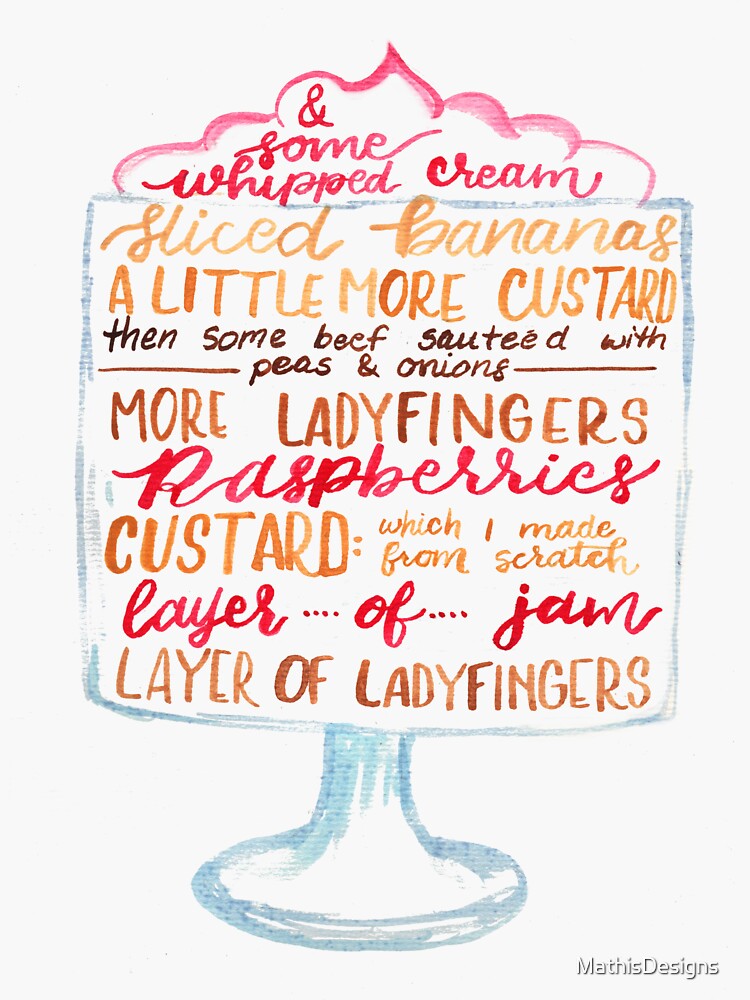 &
some
whipped cream
sliced bananas
A LITTLE MORE CUSTARD
then some beef sautéed with
peas & onions
MORE LADYFINGERS
Raspberries
CUSTARD: which I made
from scratch
layer .... of .... jam
LAYER OF LADYFINGERS
MathisDesigns